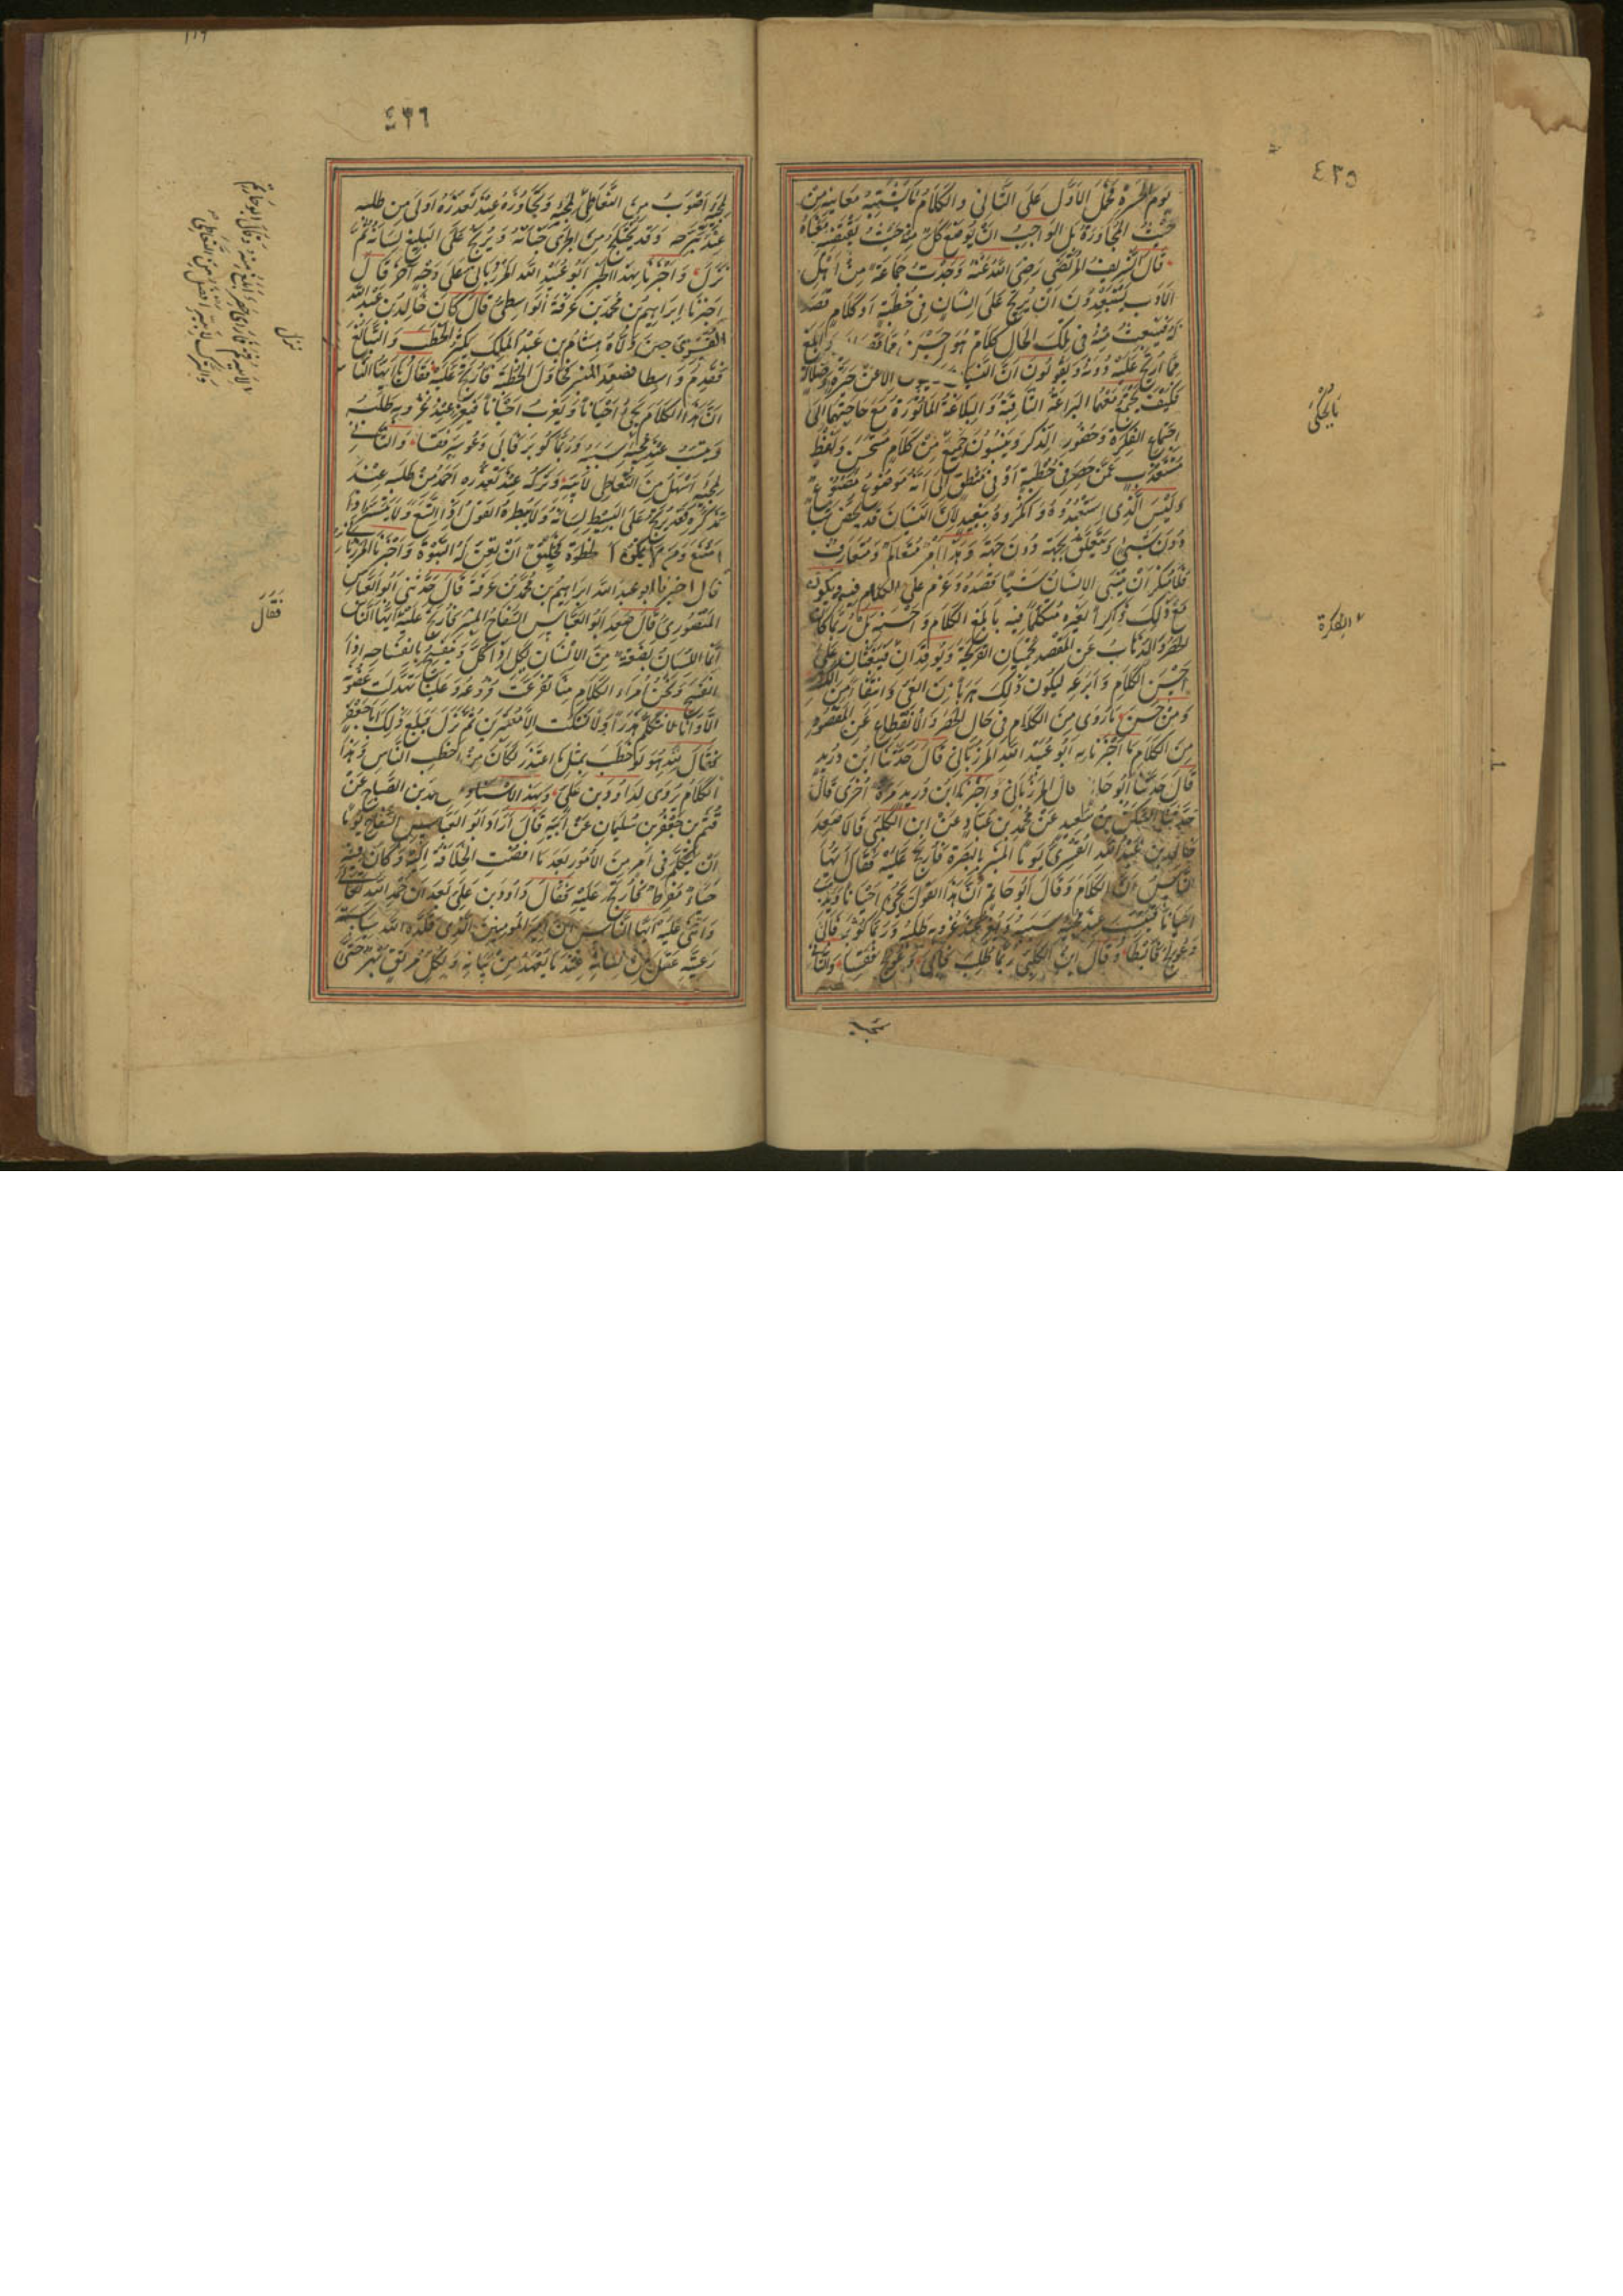 ٤٣٥
يوم الحشرة فحمل الاول على الثاني والكلام ما يشتبه معانيه من
حيث المجاورة بل الواجب ان يوضع كل منه حيث يقتضيه معناه
قال الشريف المرتضى رضي الله عنه وجدت جماعة من اهل
الادب يستبعدون ان يرتج على انسان في خطبة او كلام قصد
له فينبعث منه في تلك الحال كلام هو احسن مما قصد وابلغ
مما ارتج عليه دونه ويقولون ان النسيان لا يكون الا عن حيرة وضلالة
فكيف تجتمع معهما البراعة الثاقبة والبلاغة الماثورة مع حاجتهما الى
اجتماع الفكرة وحضور الذكر وينسبون جميع من كلام مستحسن ولفظ
مستعذب عمن حصر في خطبة او في منطق الى انه موضوع مصنوع
وليس الذي استبعدوه وانكروه ببعيد لان النسيان قد يخص شيئا
دون شيء ويتعلق بجهة دون جهة وهذا امر متعالم ومتعارف
فلا ينكر ان ينسى الانسان شيئا قصده وعزم على الكلام فيه ويكون
مع ذلك ذاكرا لغيره متكلما فيه بابلغ الكلام واحسنه بل ربما كان
الحصر والذهاب عن المقصد يحميان القريحة ويوقدان فيبعثان على
احسن الكلام وابرعه ليكون ذلك هربا من العي وانتفاء من اللكن
ومن حسن ما روى من الكلام في حال الحصر والانقطاع عن المقصود
من الكلام ما اخبرنا به ابو عبيد الله المرزباني قال حدثنا ابن دريد
قال حدثنا ابو حاتم قال المرزباني واخبرنا ابن دريد مرة اخرى قال
حدثنا السكن بن سعيد عن محمد بن عباد عن ابن الكلبي قالا صعد
خالد بن عبد الله القسري يوما المنبر بالبصرة فارتج عليه فقال ايها
الناس ان الكلام وقال ابو حاتم ان هذا القول يجيء احيانا ويذهب
احيانا فيتسبب عند مجيئه سببه ويعز عند عزوبه طلبه وربما كوثر فابى
وعولج فابطا وقال ابن الكلبي ربما طلب فابى وعولج فقسا والتاني
لمجيه
بالحكى
الفكرة
٤٣٦
لمجيه اصوب من التعاطي لمجيه وتجاوزه عند تعذره اولى من طلبه
عند تنزحه وقد يختلج من الجري جنانه ويرتج على البليغ لسانه ثم
نزل واخبرنا بهذا الخبر ابو عبيد الله المرزباني على وجه اخر قال
اخبرنا ابراهيم بن محمد بن عرفة الواسطي قال كان خالد بن عبد الله
القسري حين ولاه هشام بن عبد الملك يكثر الخطب والتبالغ
فقدم واسطا فصعد المنبر فحاول الخطبة فارتج عليه فقال ايها الناس
ان هذا الكلام يجيء احيانا ويعزب احيانا فيعز عند عزوبه طلبه
ويتسبب عند مجيئه سببه وربما كوبر فابى وعوسر فقسا والتاني
لمجيه اسهل من التعاطي لابيه وتركه عند تعذره احمد من طلبه عند
تنكره وقد يرتج على البسيط لسانه ولا ينظره القول اذا اتسع ولا يتيسر اذا
امتنع ومن لم يمكن له الخطوة فخليق ان تعن له النبوة واخبرنا المرزباني
قال اخبرنا ابو عبد الله ابراهيم بن محمد بن عرفة قال حدثني ابو العباس
المنصوري قال صعد ابو العباس السفاح المنبر فارتج عليه ايها الناس
انما اللسان بضعة من الانسان يكل اذا كل وينفسح بانفساحه اذا
انفسح ونحن امراء الكلام منا تفرعت فروعه وعلينا تهدلت غصونه
الا وانا لا نتكلم هذرا ولا نسكت الا معتبرين ثم نزل فبلغ ذلك ابا جعفر
فقال لله هو لو خطب بمثل ما اعتذر لكان من اخطب الناس وهذا
الكلام يروى لداود بن علي وبهذا الاسناد محمد بن الصباح عن
قثم بن جعفر بن سليمان عن ابيه قال اراد ابو العباس السفاح يوما
ان يتكلم في امر من الامور بعد ما افضت الخلافة اليه وكان فيه
حياء مفرط فارتج عليه فقال داود بن علي بعد ان حمد الله تعالى
واثنى عليه ايها الناس ان امير المؤمنين الذي قلده الله سياسة
رعيته عقل من لسانه عند ما يعهد من بيانه ولكل مرتق بهر حتى
نزل
فقال